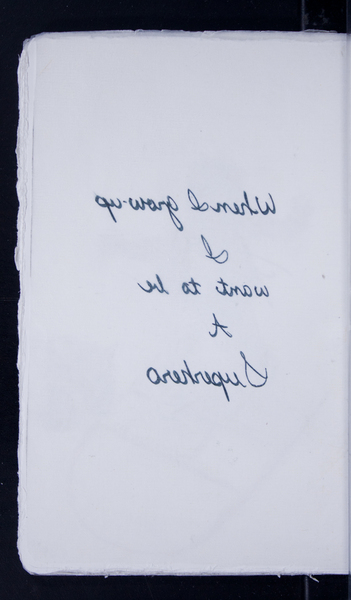 When I grow-up
I
want to be
A
Superhero